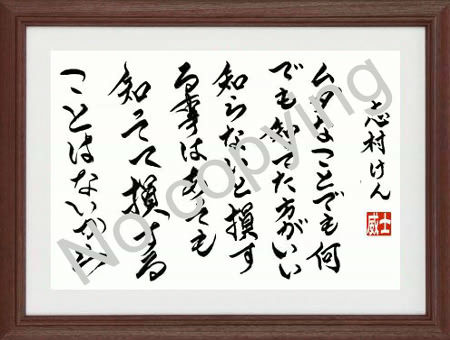 志村けん
ムダなことでも何
でも知ってた方がいい
知らないと損す
る事はあっても
知ってて損する
ことはないから
威士
No copying